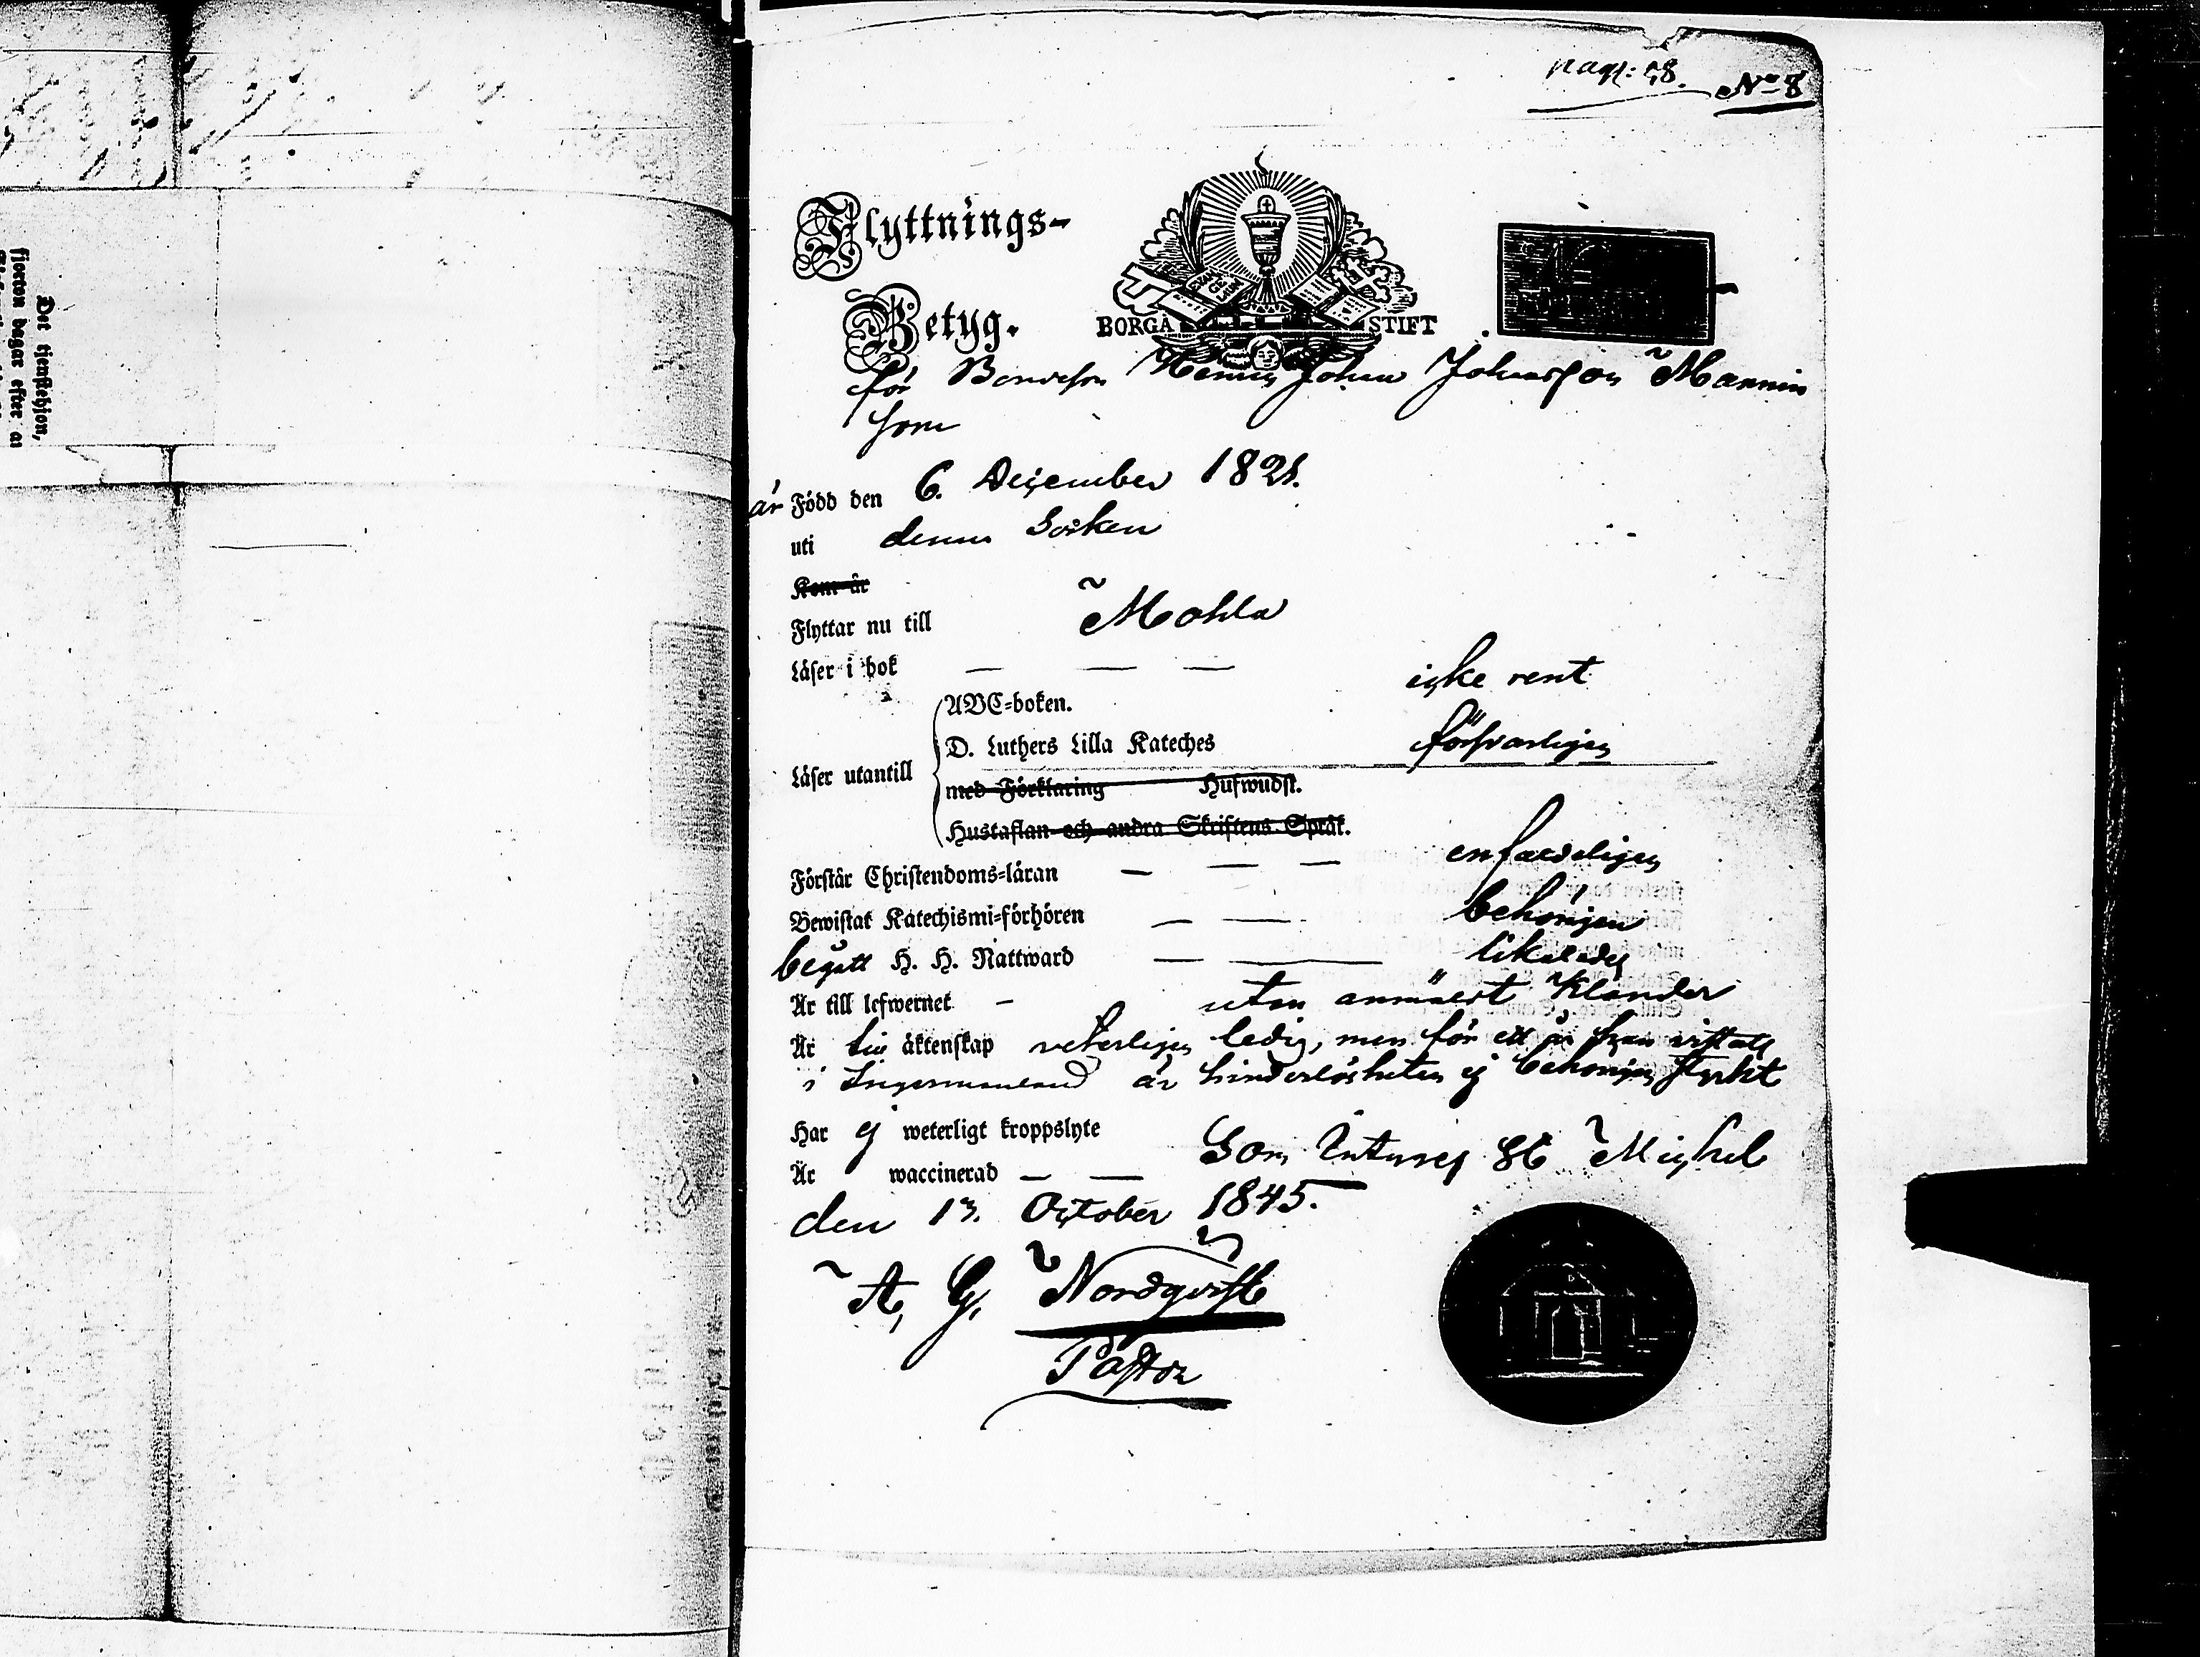 Det tjenstehjon,
fjorton dagar efter
pag: 58. No 8
Flyttnings-
Betyg.
BORGÅ STIFT
EVANGELIUM
för Bondeson Johan Johansson Mannin
som
är Född den 6. December 1828.
uti denna Socken
Kom år
Flyttar nu till Mohla
Läser i bok — — — icke rent
Läser utantill
ABC-boken.
D. Luthers Lilla Kateches försvarligen
med Förklaring Hufwudst.
Hustaflan och andra Skriftens Språk.
Förstår Christendoms-läran — — — enfaldeligen
Bewistat Katechismi-förhören — — behörigen
begått H. H. Nattward — — likaledes
Är till lefwernet — utan anmäldt klander
Är till äktenskap veterligen ledig, men för ett år han vistats
i Ingermanland är hinderlösheten ej behörigen styrkt
Har ej weterligt kroppslyte
Är waccinerad — — Som intygas St Michel
den 13. October 1845.
A. G. Nordqvist
Pastor